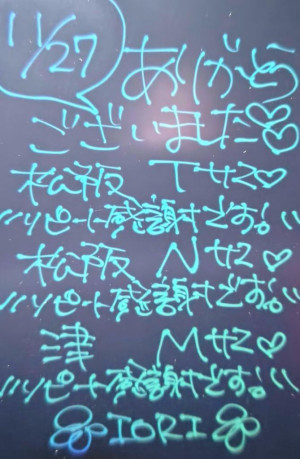 11/27
ありがとう
ございました♡♡
松阪 Tサン♡
\\リピート感謝です。//
松阪 Nサン♡
\\リピート感謝です。//
津 Mサン♡
\\リピート感謝です。//
IORI